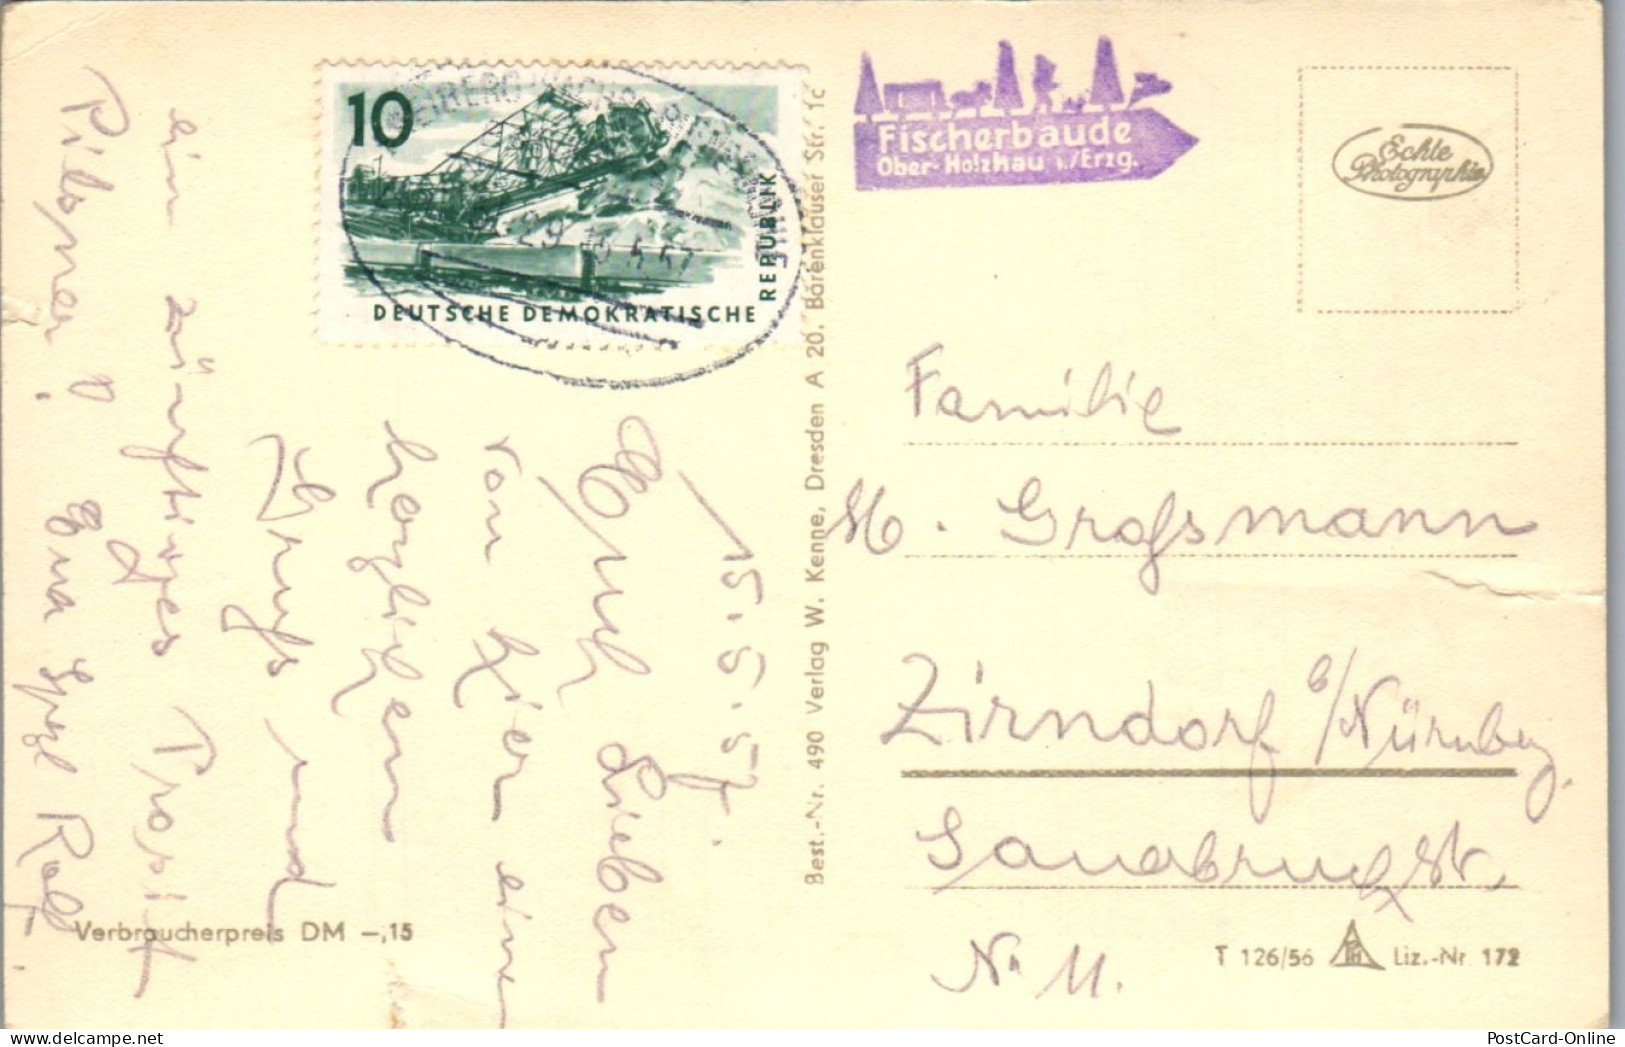 15.5.57.
Euch Lieben
von hier einen
herzlichen
Gruß und
ein zünftiges Prosit
Pilsner! Eua Rolf.
10
DEUTSCHE DEMOKRATISCHE
REPUBLIK
29 15.5.57
Verbraucherpreis DM —,15
Best.-Nr. 490 Verlag W. Kenne, Dresden A 20. Bärenklauser Str. 1c
Fischerbaude
Ober-Holzhau i./Erzg.
Echte
Photographie
Familie
M. Großmann
Zirndorf b/Nürnberg.
Str.
Nr 11.
T 126/56 Liz.-Nr. 172
PostCard-Online